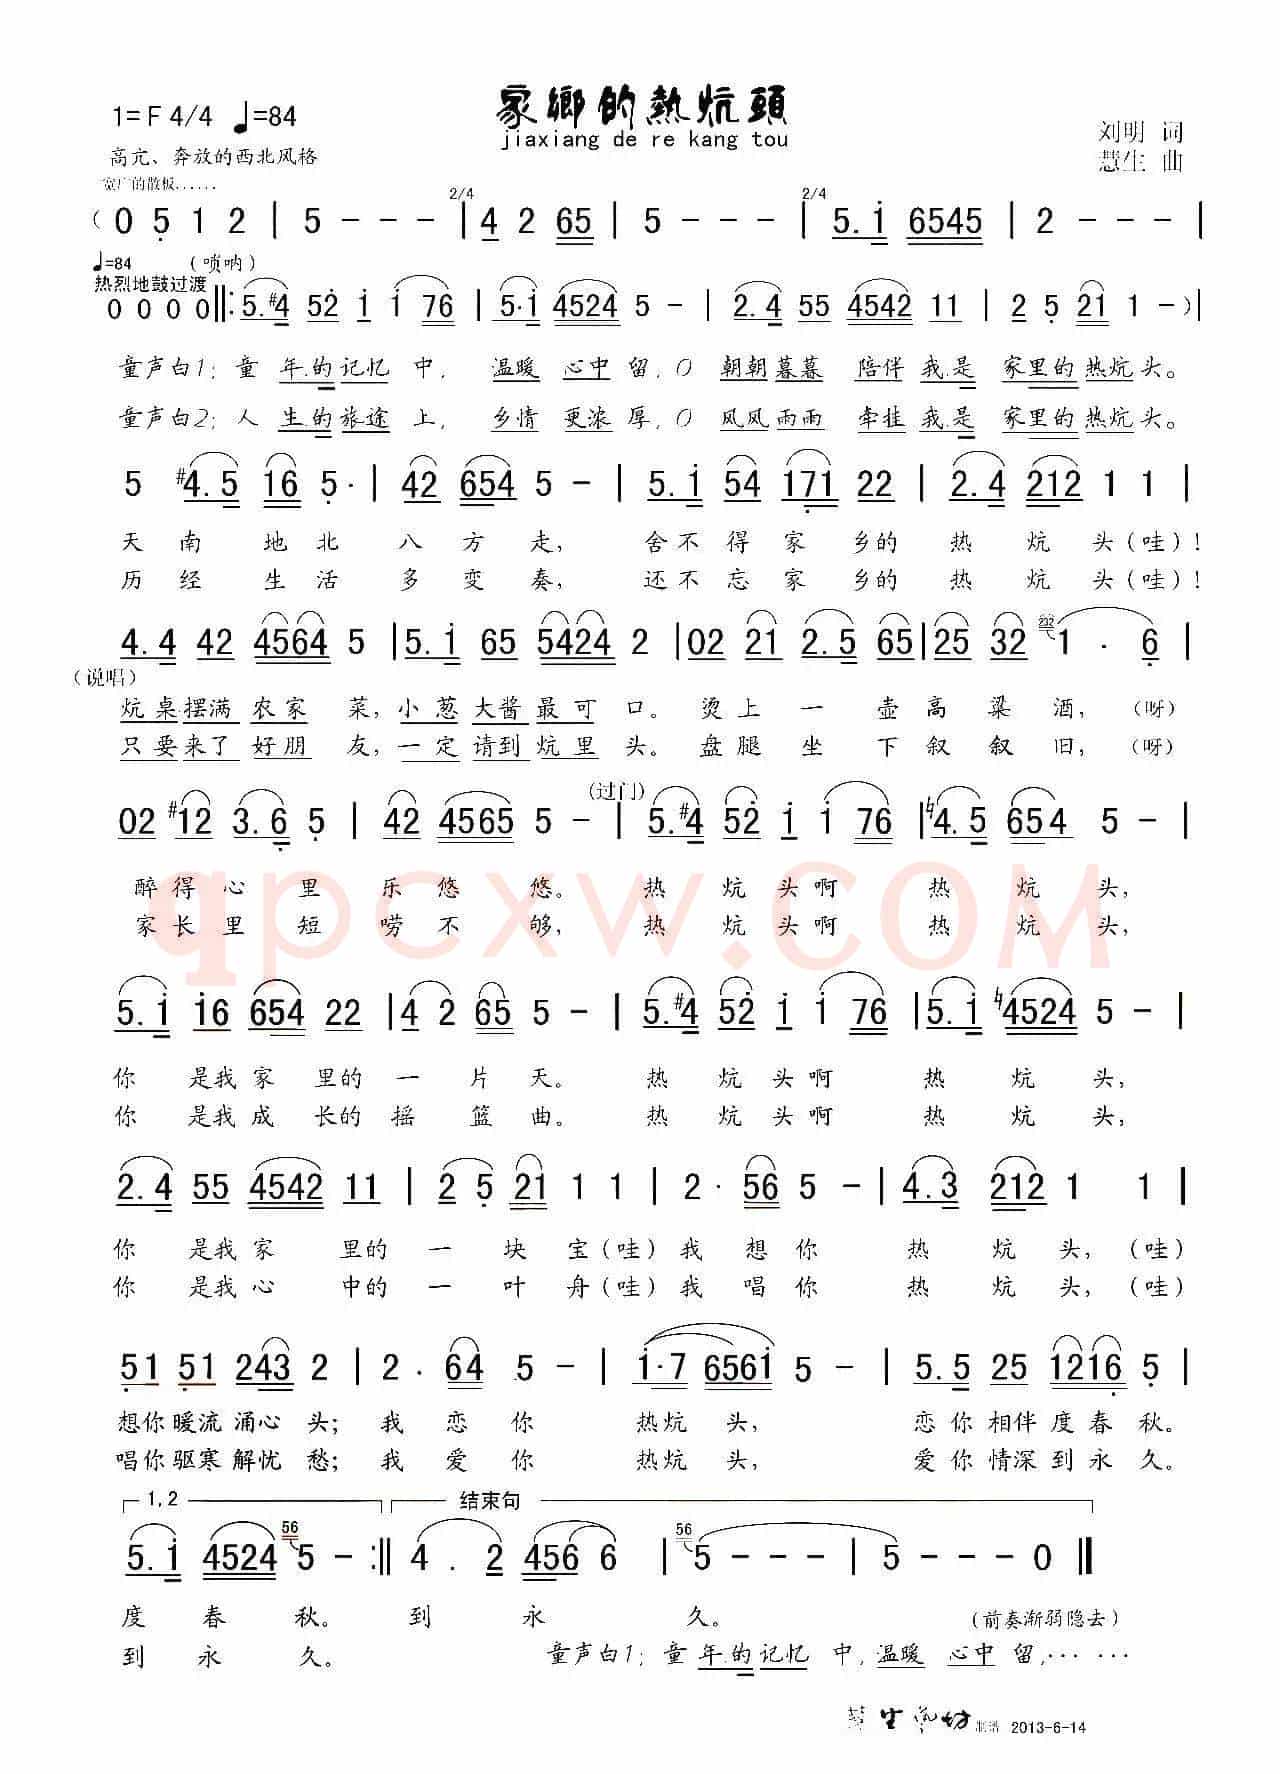 家鄉的熱炕頭
jiaxiang de re kang tou
1=F 4/4 ♩=84
刘明 词
高亢、奔放的西北风格
慧生 曲
宽广的散板......
2/4 2/4
( 0 5 1 2 | 5 - - - | 4 2 65 | 5 - - - | 5.i 6545 | 2 - - - |
♩=84 (唢呐)
热烈地鼓过渡
0 0 0 0 ‖: 5.#4 52 i i 76 | 5·i 4524 5 - | 2.4 55 4542 11 | 2 5 21 1 - ) |
童声白1;童 年.的记忆 中, 温暖 心中 留,0 朝朝暮暮 陪伴我.是 家里的热炕头。
童声白2;人 生.的旅途 上, 乡情 更浓厚,0 风风雨雨 牵挂我.是 家里的热炕头。
5 #4.5 16 5· | 42 654 5 - | 5.i 54 171 22 | 2.4 212 1 1 |
天 南 地 北 八 方 走, 舍不得家 乡的 热 炕 头(哇)!
历 经 生 活 多 变 奏, 还不忘家 乡的 热 炕 头(哇)!
4.4 42 4564 5 | 5.i 65 5424 2 | 02 21 2.5 65 | 25 32 1 · 6 |
(说唱)
炕桌摆满 农家 菜,小葱大酱最可 口。烫上 一 壶高 粱 酒,(呀)
只要来了 好朋 友,一定请到炕里 头。盘腿 坐 下叙 叙 旧,(呀)
(过门)
02 #12 3.6 5 | 42 4565 5 - | 5.#4 52 i i 76 | ♮4.5 654 5 - |
醉得心 里 乐 悠 悠。 热 炕 头啊 热 炕 头,
家长里 短 唠 不 够, 热 炕 头啊 热 炕 头,
5.i i6 654 22 | 4 2 65 5 - | 5.#4 52 i i 76 | 5.i ♮4524 5 - |
你 是我 家 里的 一 片 天。 热 炕 头啊 热 炕 头,
你 是我 成 长的 摇 篮 曲。 热 炕 头啊 热 炕 头,
2.4 55 4542 11 | 2 5 21 1 1 | 2· 56 5 - | 4.3 212 1 1 |
你 是我 家 里的 一 块 宝(哇)我 想 你 热 炕 头,(哇)
你 是我 心 中的 一 叶 舟(哇)我 唱 你 热 炕 头,(哇)
51 51 243 2 | 2· 64 5 - | i·7 656i 5 - | 5.5 25 1216 5 |
想你 暖流 涌心 头; 我 恋 你 热炕 头, 恋你 相伴 度春 秋。
唱你 驱寒 解忧 愁; 我 爱 你 热炕 头, 爱你 情深 到永 久。
1,2 结束句
5.i 4524 56 5 - :‖ 4 . 2 456 6 | 56 5 - - - | 5 - - 0 ‖
度 春 秋。 到 永 久。 (前奏渐弱隐去)
到 永 久。 童声白1;童 年.的记忆 中,温暖 心中 留,··· ···
慧生艺坊 制谱 2013-6-14
qpcxw.COM